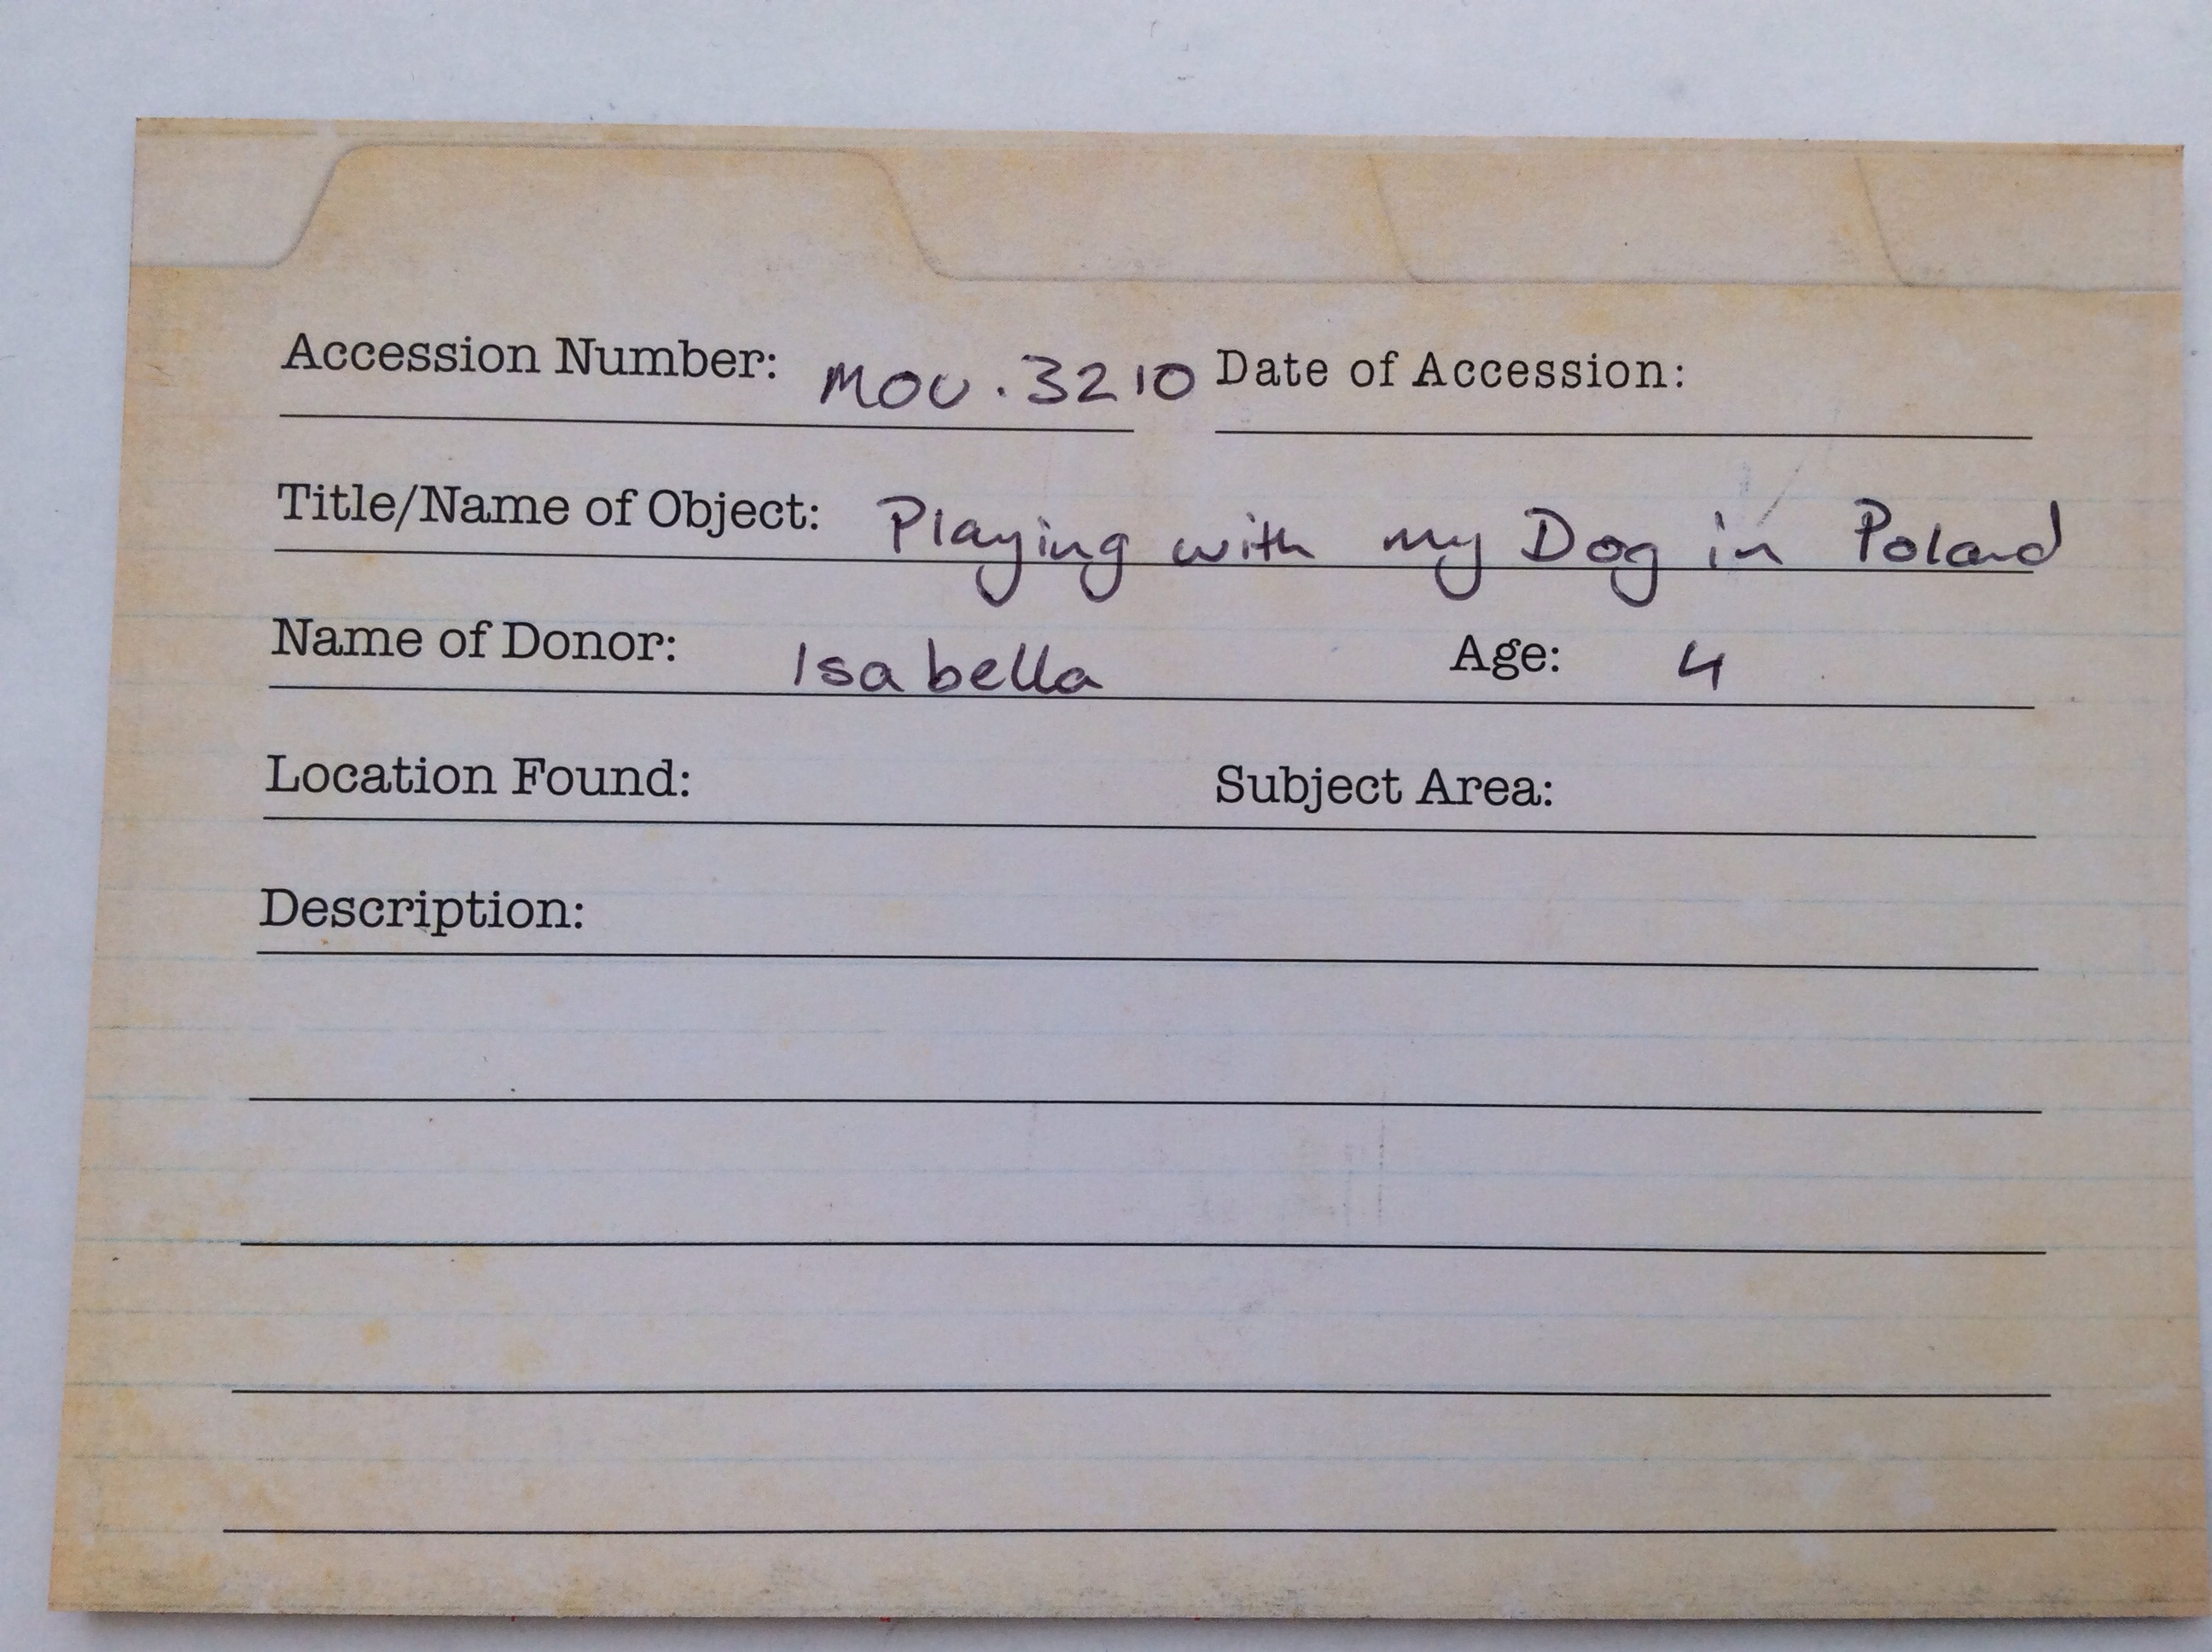 Accession Number: MOU.3210 Date of Accession:
Title/Name of Object: Playing with my Dog in Poland
Name of Donor: Isabella Age: 4
Location Found: Subject Area:
Description: